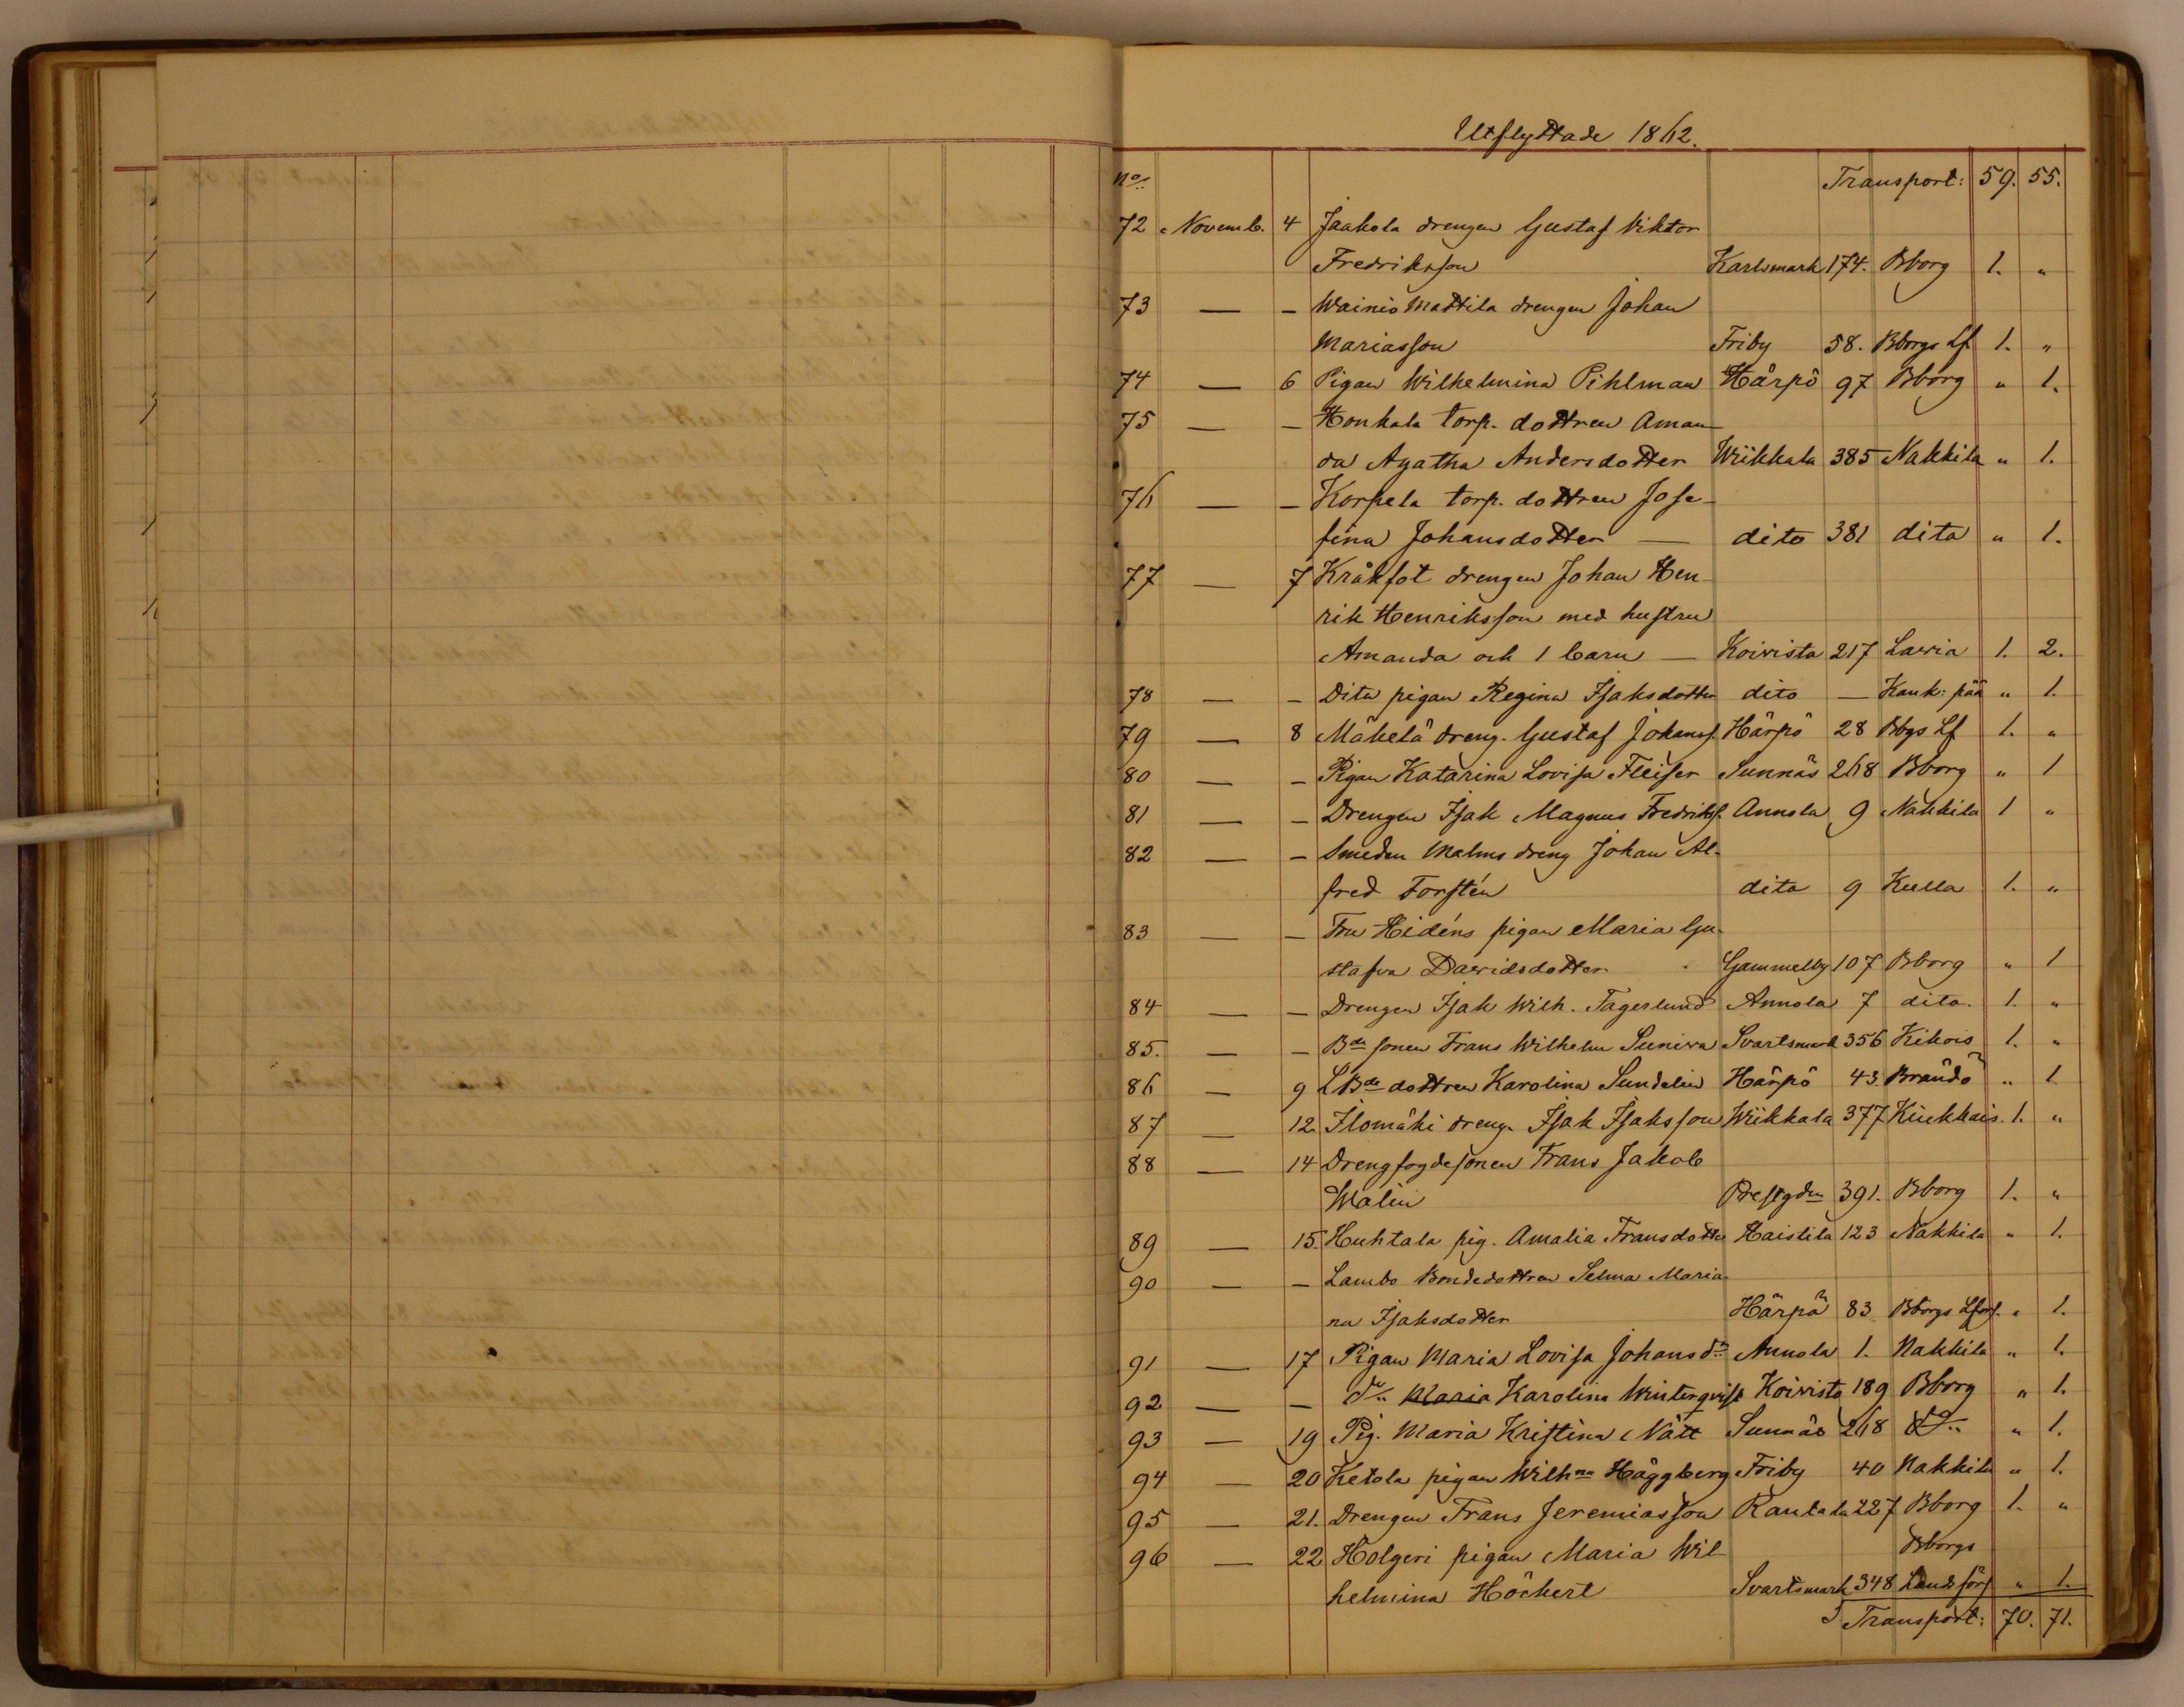 Utflyttade 1862.
No Transport: 59. 55.
72 Novemb. 4 Jaakola drengen Gustaf Viktor
Fredriksson Karlsmark 174. Bborg 1. "
73 — — Wainio Mattila drengen Johan
Mariasson Friby 58. Bborgs Lf 1. "
74 — 6 Pigan Wilhelmina Pihlman Härpö 97 Bborg " 1.
75 — — Honkala torp. dottren Aman-
da Agatha Andersdotter Wiikkala 385 Nakkila " 1.
76 — — Korpela torp. dottren Jose-
fina Johansdotter — dito 381 dito " 1.
77 — 7 Kråkfot drengen Johan Hen-
rik Henriksson med hustru
Amanda och 1 barn — Koivisto 217 Lavia 1. 2.
78 — — Dito pigan Regina Isaksdotter dito — Kank: pää " 1.
79 — 8 Mäkelä dreng. Gustaf Johanss. Härpö 28 Bbgs Lf 1. "
80 — — Pigan Katarina Lovisa Fleiser Sunnäs 268 Bborg " 1
81 — — Drengen Isak Magnus Fredrikss. Annola 9 Nakkila 1 "
82 — — Smeden Malms dreng Johan Al-
fred Forstén dito 9 Kulla 1. "
83 — — Fru Hidéns pigan Maria Gu-
stafva Davidsdotter Gammelby 107 Bborg " 1
84 — — Drengen Isak Wilh. Fagerlund Annola 7 dito. 1. "
85. — — Bde sonen Frans Wilhelm Suniva Svartsmark 356 Kikois 1. "
86 — 9 LBde dottren Karolina Sundelin Härpö 43. Brändö " 1
87 — 12. Ilomäki dreng. Isak Isaksson Wiikkala 377 Kiukkais. 1. "
88 — 14 Drengfogdesonen Frans Jakob
Malin Prestgdn 391. Bborg 1. "
89 — 15. Huhtala pig. Amalia Fransdotter Haistila 123 Nakkila " 1.
90 — — Lambo Bondedottren Selma Maria-
na Isaksdotter Härpö 83 Bborgs Lförs. " 1.
91 — 17 Pigan Maria Lovisa Johansdr Annola 1. Nakkila " 1.
92 — — do Maria Karolina Winterqvist Koivisto 189 Bborg " 1.
93 — 19 Pig. Maria Kristina Nätt Sunnäs 268 do " 1.
94 — 20 Ketola pigan Wilhna Häggberg Friby 40 Nakkila " 1.
95 — 21. Drengen Frans Jeremiasson Rantala 227 Bborg 1. "
96 — 22 Holgeri pigan Maria Wil- Bborgs
helmina Höckert Svartsmark 348 Landsförs " 1.
Transport: 70. 71.